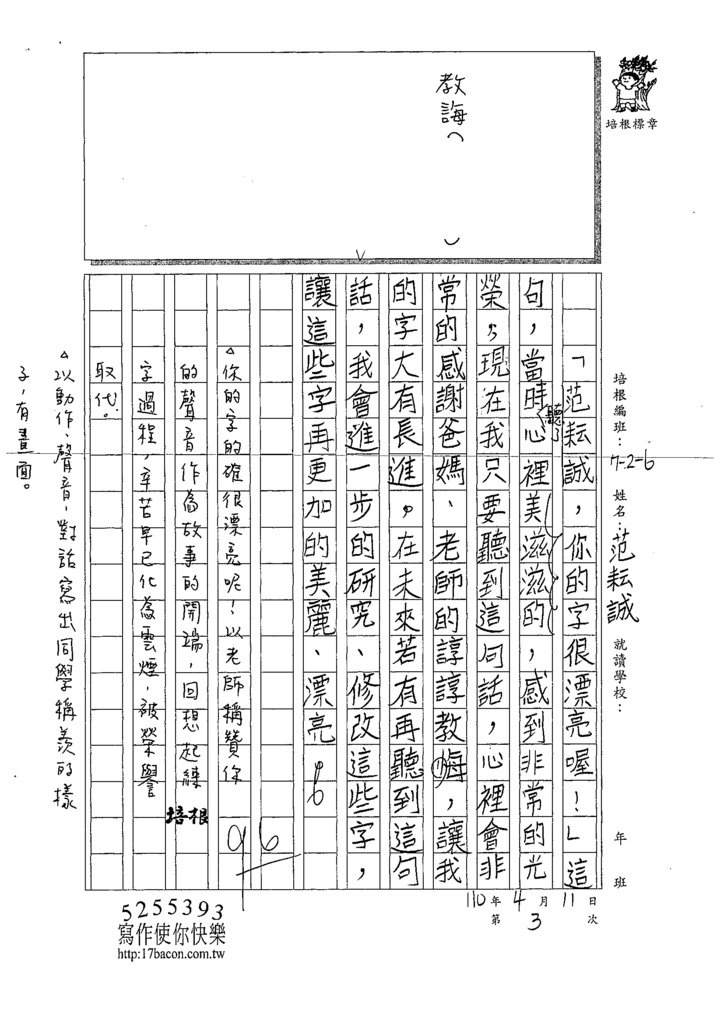 培根標章
教誨︵　︶
培根編班：7-2-6 姓名：范耘誠 就讀學校： 年 班
110年4月11日
第3次
「范耘誠，你的字很漂亮喔！」這
句，當時聽了心裡美滋滋的，感到非常的光
榮，現在我只要聽到這句話，心裡會非
常的感謝爸媽、老師的諄諄教誨，讓我
的字大有長進。在未來若有再聽到這句
話，我會進一步的研究、修改這些字，
讓這些字再更加的美麗、漂亮。
96
△你的字的確很漂亮呢！以老師稱贊你
的聲音作為故事的開端，回想起練
字過程，辛苦早已化為雲煙，被榮譽
取代。
培根
△以動作、聲音，對話寫出同學稱羨的樣
子，有畫面。
5255393
寫作使你快樂
http:17bacon.com.tw